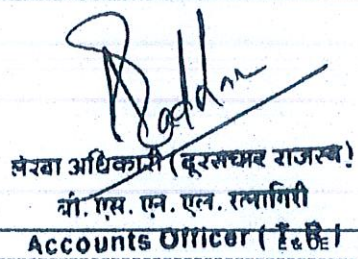 लेखा अधिकारी (दूरसंचार राजस्व)
बी. एस. एन. एल. रत्नागिरी
Accounts Officer (